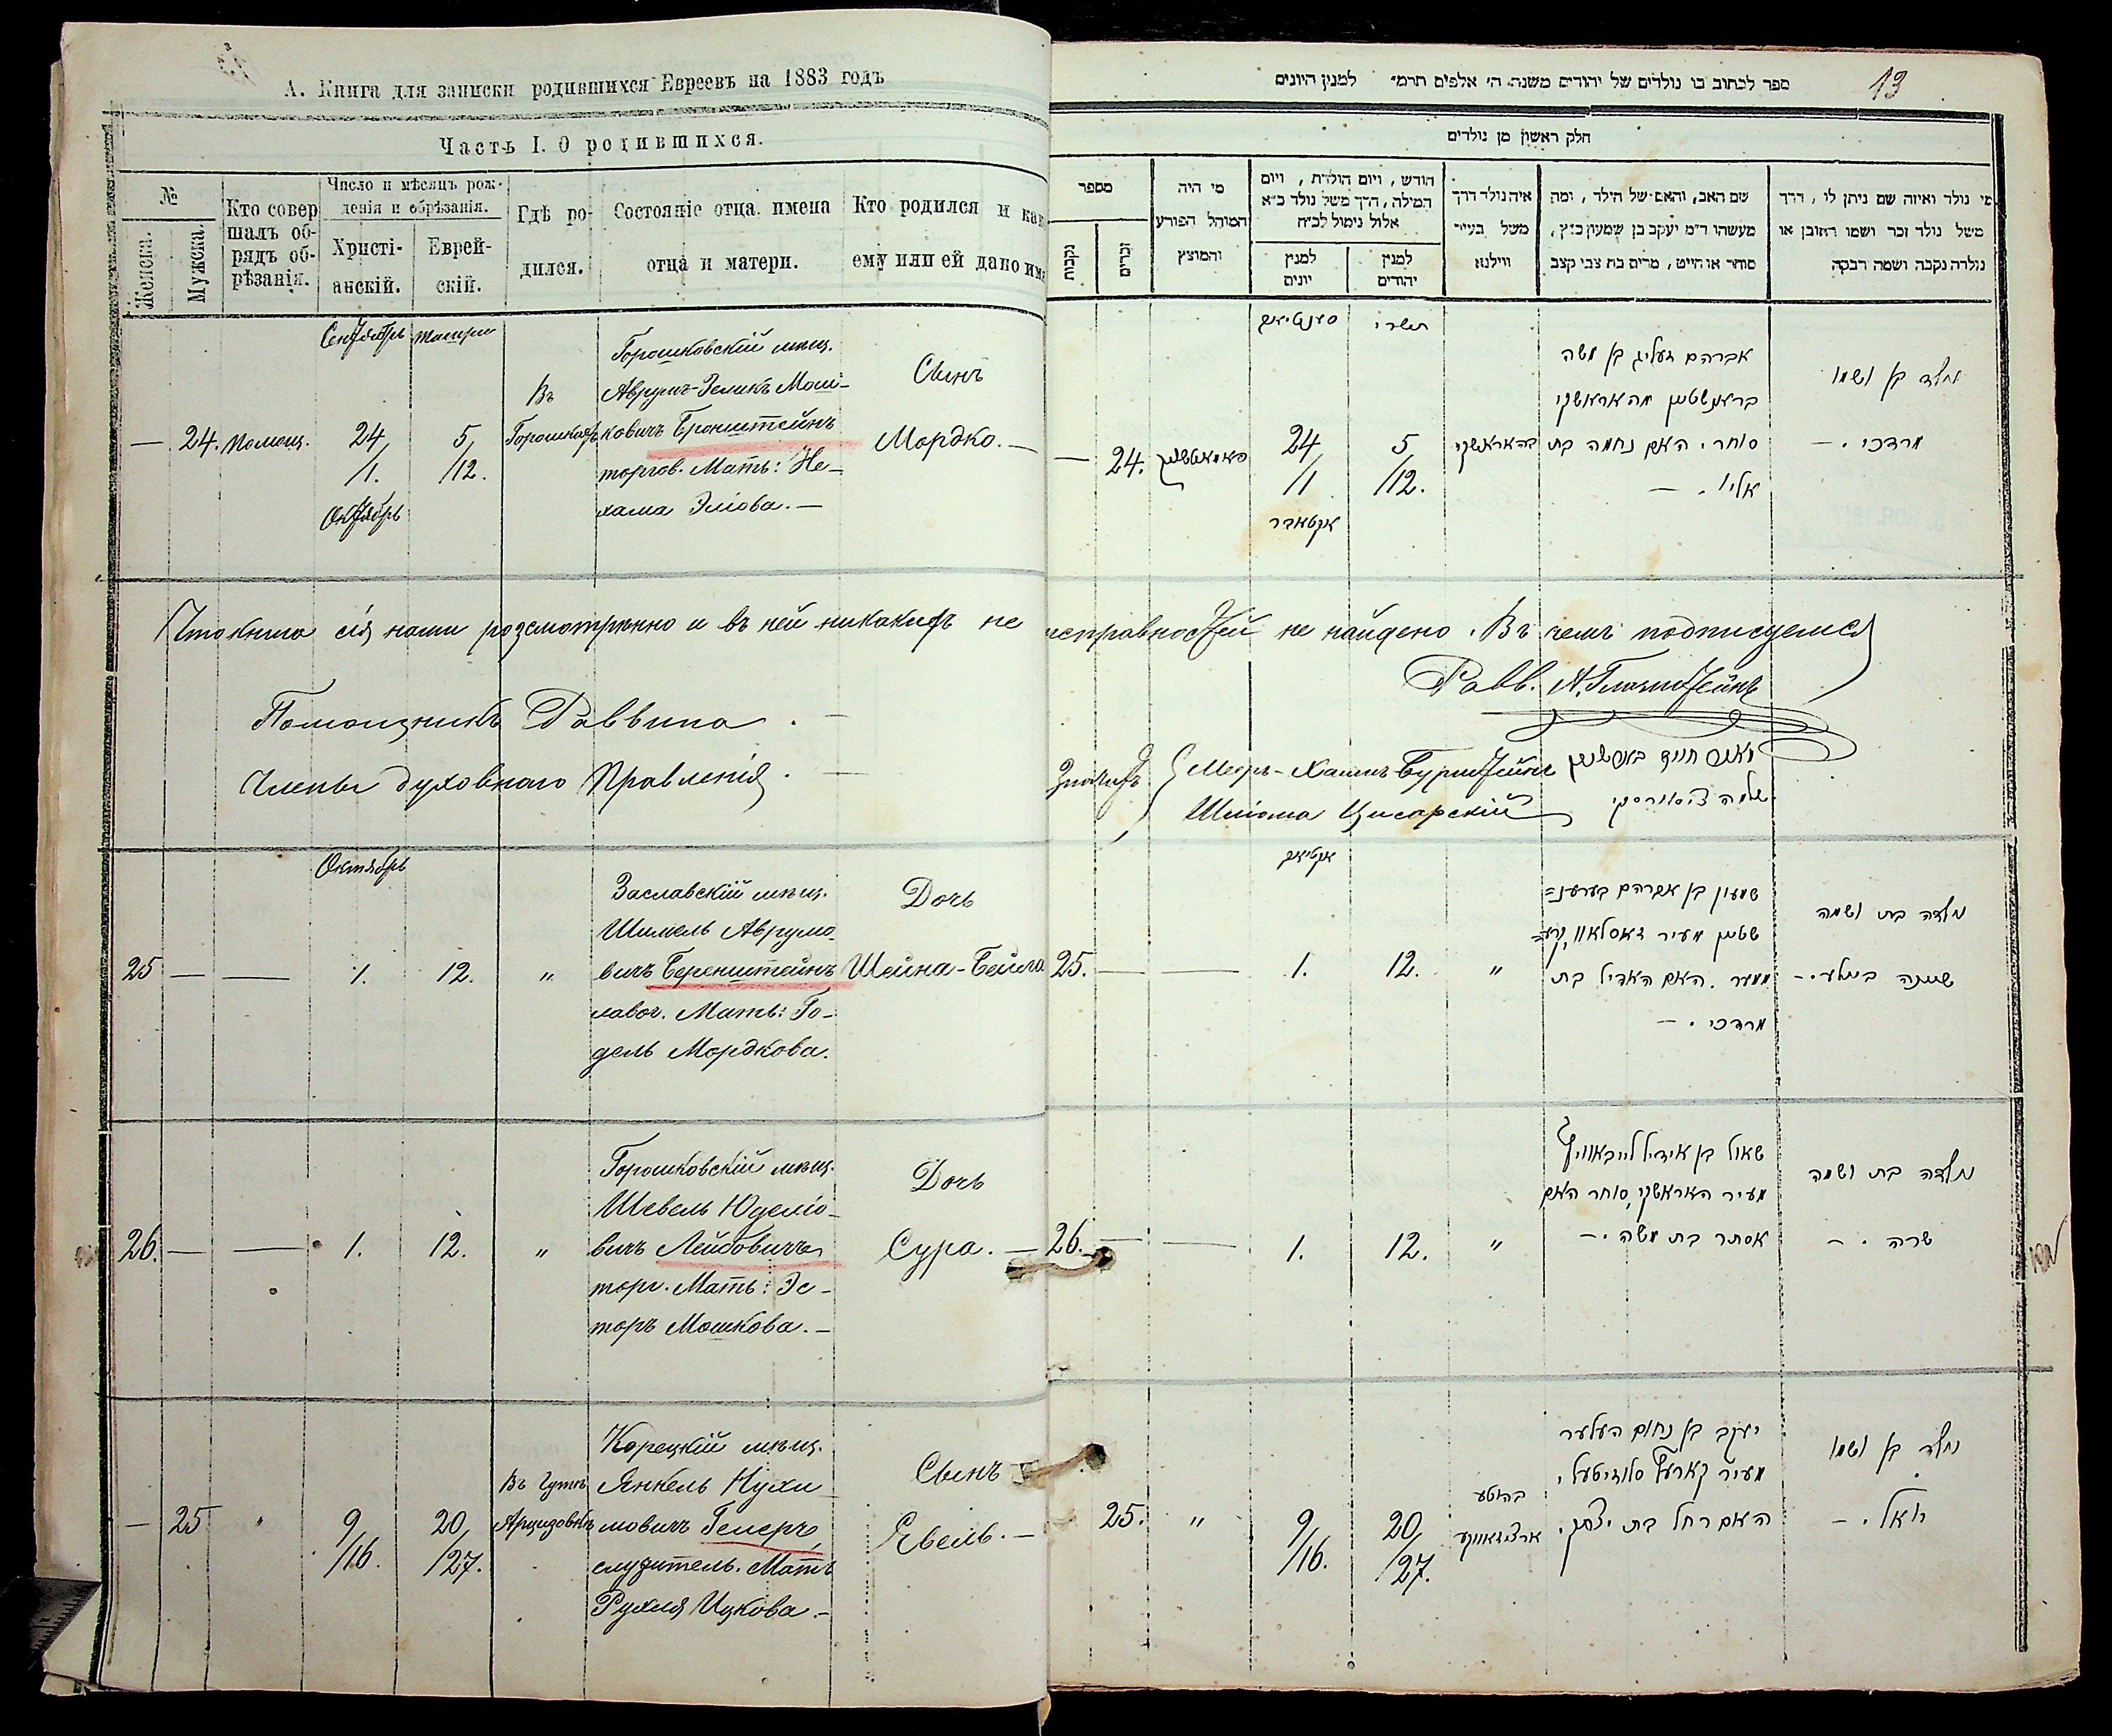 А. Книга для записки родившихся Евреевъ на 1883 годъ
Часть I. О родившихся.
№
Женска.
Мужска.
Кто совер
шалъ об-
рядъ об-
рѣзанія.
Число и мѣсяцъ рож-
денія и обрѣзанія.
Христі-
анскій.
Еврей-
скій.
Гдѣ ро-
дился.
Состояніе отца, имена
отца и матери.
Кто родился и как
ему или ей дано има
Сентябрь
Тишри
— 24. Помощ.
24/1.
5/12.
Октябрь
Въ
Горошкахъ
Горошковскій мѣщ.
Аврумъ-Зеликъ Мош-
ковичъ Бронштейнъ
торгов. Мать: Не-
хама Эліова. —
Сынъ
Мордко. —
Что книга сія нами розсмотрѣнно и въ ней никакихъ не
Помощникъ Раввина . —
Члены духовнаго Правленія . —
Октябрь
25 — — 1. 12. "
Заславскій мѣщ.
Шимель Аврумо-
вичъ Беренштейнъ
лавоч. Мать: Го-
дель Мордкова.
Дочь
Шейна-Бейла
26. — — 1. 12. "
Горошковскій мѣщ.
Шевель Юделіо-
вичъ Лейбовичъ
торг. Мать: Эс-
торъ Мошкова. —
Дочь
Сура. —
— 25 "
9/16.
20/27.
Въ Гутѣ
Корецкій мѣщ.
Янкель Нухи-
мовичъ Гелеръ,
служитель. Мать
Рухля Ицкова. —
Сынъ
Евель. —
13
ספר לכתוב בו נולדים של יהודים משנה ה' אלפים תרמ" למנין היונים
חלק ראשון מן נולדים
מספר
נקבות
זכרים
מי היה
המוהל הפורע
והמוצץ
חודש, ויום הולדת, ויום
המילה, דרך משל נולד כ"א
אלול נימול לכ"ח
למנין
יונים
למנין
יהודים
איה נולד דרך
משל בעיר
ווילנא
שם האב, והאם של הילד, ומה
מעשהו ד"מ יעקב בן שמעון כ"ץ,
סוחר או חייט, מרים בת צבי קצב
מי נולד ואיזה שם ניתן לו, דרך
משל נולד זכר ושמו ראובן או
נולדה נקבה ושמה רבקה
תשרי
— 24.
24/1
5/12.
אקטאבר
אברהם זעליג בן משה
בראנשטיין מהאראשקי
סוחר, האם נחמה בת
אלי' . —
נולד בן ושמו
מרדכי . —
исправностей не найдено. Въ чемъ подписуемся
Равв.
Меэръ-Хаимъ Бурштейнъ
Шліома Цисарскій
25. — — 1. 12. "
שמעון בן אברהם בערענ=
שטיין מעיר זאסלאוו,
האם האדיל בת
מרדכי . —
נולדה בת ושמה
שיינה ביילע . —
26. — — 1. 12. "
שאול בן אידיל לייבאוויץ
מעיר האראשקי, סוחר האם
אסתר בת משה . —
נולדה בת ושמה
שרה . —
25. "
9/16.
20/27.
בהוטע
יעקב בן נחום העלער
מעיר קארעץ
האם רחל בת יצחק.
נולד בן ושמו
יואל . —